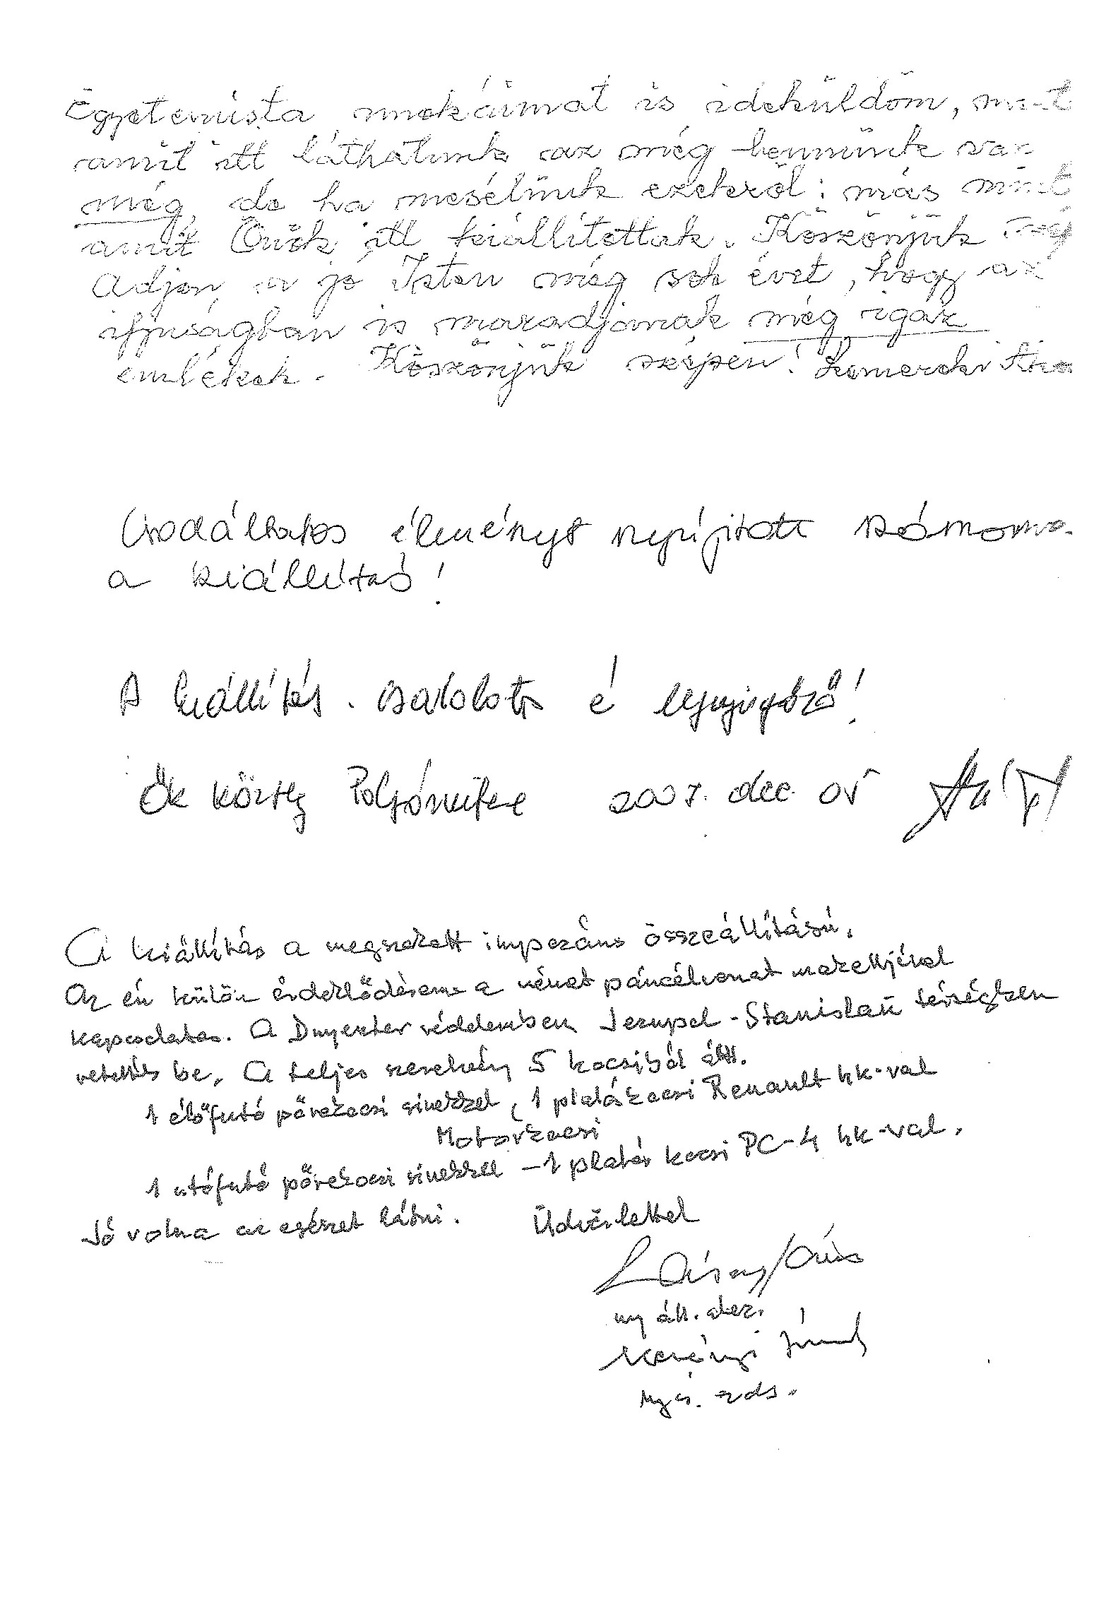 Egyetemista unokáimat is ideküldöm, mert
amit itt láthatunk az még bennünk van
még, de ha mesélünk ezekről: más mint
amit Önök itt kiállítottak. Köszönjük
Adjon a jó Isten még sok évet, hogy az
ifjuságban is maradjanak még igaz
emlékek. Köszönjük szépen!
Csodálatos élményt nyújtott számomra
a kiállítás!
A kiállítás csodálatos é lenyűgöző!
Ők 2007. dec. 05
A kiállítás a megszokott impozáns összeállítású.
Az én külön érdeklődésem a német páncélvonat makettjével
kapcsolatos. A Dnyeszter védelemben Jezupol - Stanislau térségben
vetették be. A teljes szerelvény 5 kocsiból állt.
1 előfutó pőrekocsi sínekkel, 1 platókocsi Renault hk-val
Motorkocsi
1 utófutó pőrekocsi sínekkel - 1 platós kocsi PC-4 hk-val.
Jó volna az egészet látni. Üdvözlettel
ny áll.
ny. ezds.